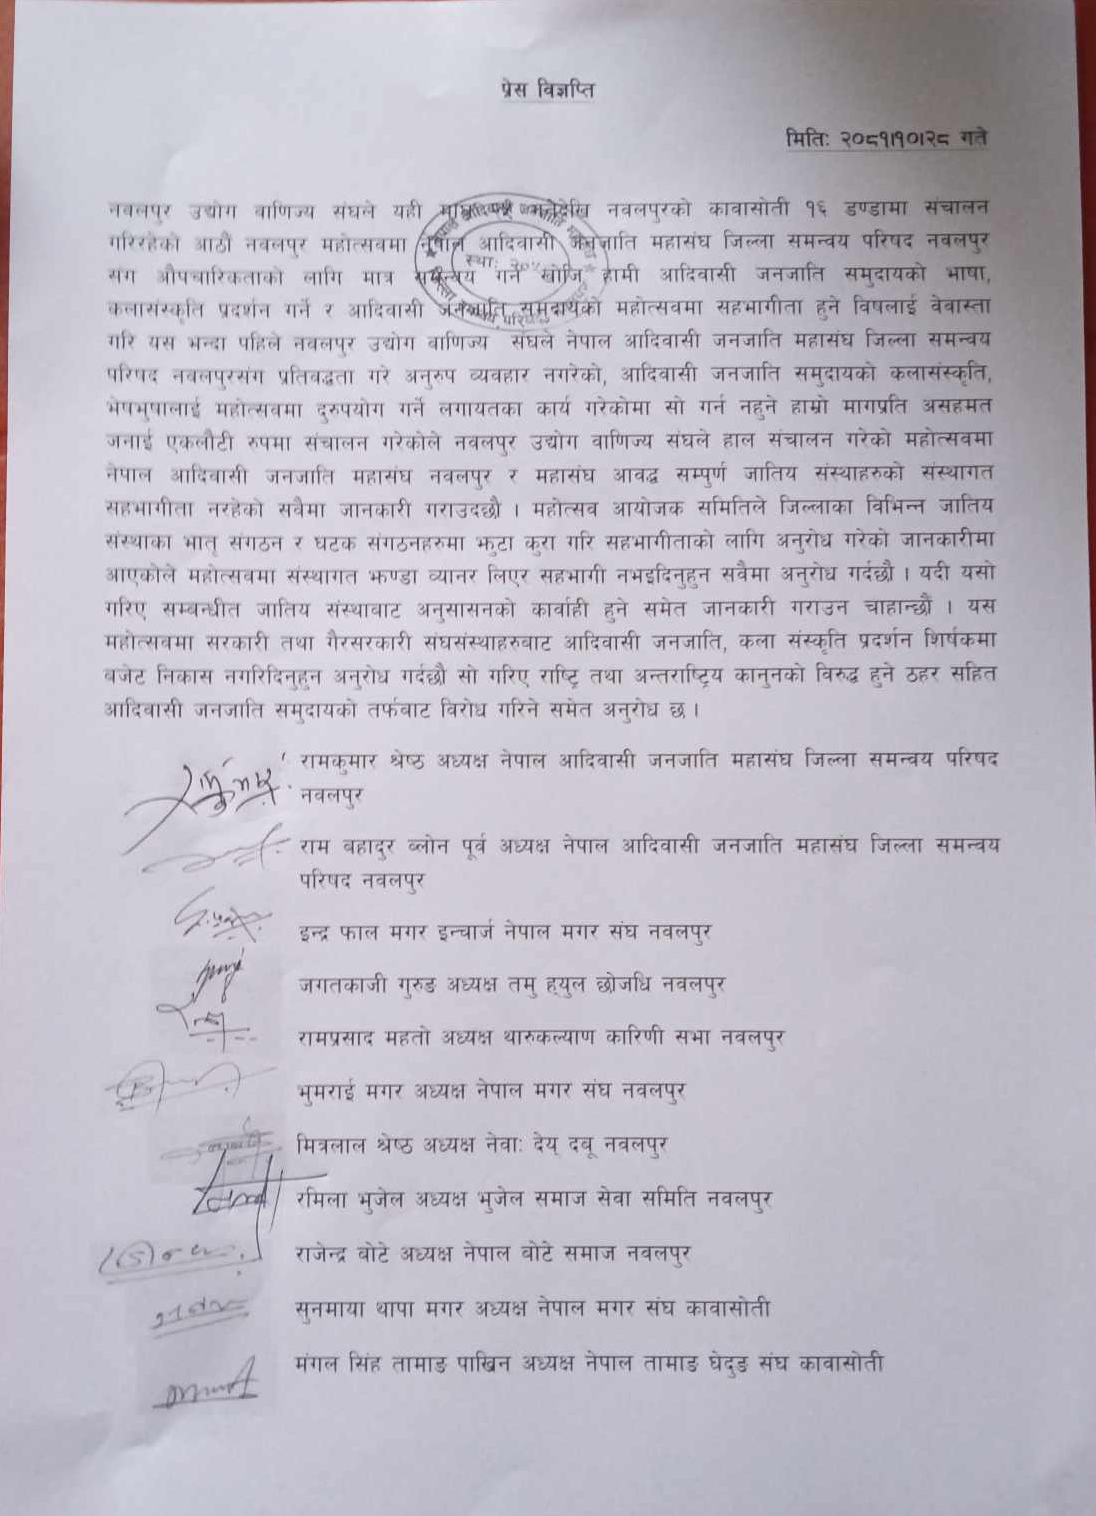 प्रेस विज्ञप्ति
मितिः २०८१।१०।२८ गते
नवलपुर उद्योग वाणिज्य संघले यही माघ गतेदेखि नवलपुरको कावासोती १६ डण्डामा संचालन
गरिरहेको आठौं नवलपुर महोत्सवमा नेपाल आदिवासी जनजाति महासंघ जिल्ला समन्वय परिषद नवलपुर
संग औपचारिकताको लागि मात्र समन्वय गर्न खोजि हामी आदिवासी जनजाति समुदायको भाषा,
कलासंस्कृति प्रदर्शन गर्ने र आदिवासी जनजाति समुदायको महोत्सवमा सहभागीता हुने विषलाई वेवास्ता
गरि यस भन्दा पहिले नवलपुर उद्योग वाणिज्य संघले नेपाल आदिवासी जनजाति महासंघ जिल्ला समन्वय
परिषद नवलपुरसंग प्रतिवद्धता गरे अनुरुप व्यवहार नगरेको, आदिवासी जनजाति समुदायको कलासंस्कृति,
भेषभुषालाई महोत्सवमा दुरुपयोग गर्ने लगायतका कार्य गरेकोमा सो गर्न नहुने हाम्रो मागप्रति असहमत
जनाई एकलौटी रुपमा संचालन गरेकोले नवलपुर उद्योग वाणिज्य संघले हाल संचालन गरेको महोत्सवमा
नेपाल आदिवासी जनजाति महासंघ नवलपुर र महासंघ आवद्ध सम्पुर्ण जातिय संस्थाहरुको संस्थागत
सहभागीता नरहेको सवैमा जानकारी गराउदछौ । महोत्सव आयोजक समितिले जिल्लाका विभिन्न जातिय
संस्थाका भातृ संगठन र घटक संगठनहरुमा झुटा कुरा गरि सहभागीताको लागि अनुरोध गरेको जानकारीमा
आएकोले महोत्सवमा संस्थागत झण्डा व्यानर लिएर सहभागी नभइदिनुहुन सवैमा अनुरोध गर्दछौ । यदी यसो
गरिए सम्बन्धीत जातिय संस्थाबाट अनुसासनको कार्वाही हुने समेत जानकारी गराउन चाहान्छौं । यस
महोत्सवमा सरकारी तथा गैरसरकारी संघसंस्थाहरुबाट आदिवासी जनजाति, कला संस्कृति प्रदर्शन शिर्षकमा
बजेट निकास नगरिदिनुहुन अनुरोध गर्दछौ सो गरिए राष्ट्रि तथा अन्तराष्ट्रिय कानुनको विरुद्ध हुने ठहर सहित
आदिवासी जनजाति समुदायको तर्फबाट विरोध गरिने समेत अनुरोध छ ।
स्थाः
रामकुमार श्रेष्ठ अध्यक्ष नेपाल आदिवासी जनजाति महासंघ जिल्ला समन्वय परिषद
नवलपुर
राम बहादुर ब्लोन पूर्व अध्यक्ष नेपाल आदिवासी जनजाति महासंघ जिल्ला समन्वय
परिषद नवलपुर
इन्द्र फाल मगर इन्चार्ज नेपाल मगर संघ नवलपुर
जगतकाजी गुरुङ अध्यक्ष तमु ह्युल छोजधि नवलपुर
रामप्रसाद महतो अध्यक्ष थारुकल्याण कारिणी सभा नवलपुर
भुमराई मगर अध्यक्ष नेपाल मगर संघ नवलपुर
मित्रलाल श्रेष्ठ अध्यक्ष नेवाः देय् दबू नवलपुर
रमिला भुजेल अध्यक्ष भुजेल समाज सेवा समिति नवलपुर
राजेन्द्र वोटे अध्यक्ष नेपाल वोटे समाज नवलपुर
सुनमाया थापा मगर अध्यक्ष नेपाल मगर संघ कावासोती
मंगल सिंह तामाङ पाख्रिन अध्यक्ष नेपाल तामाङ घेदुङ संघ कावासोती